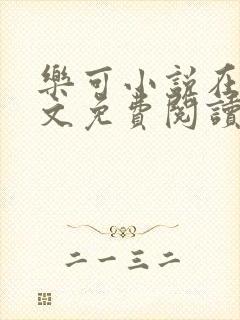 樂可小説在
文免費閱讀
二一三二